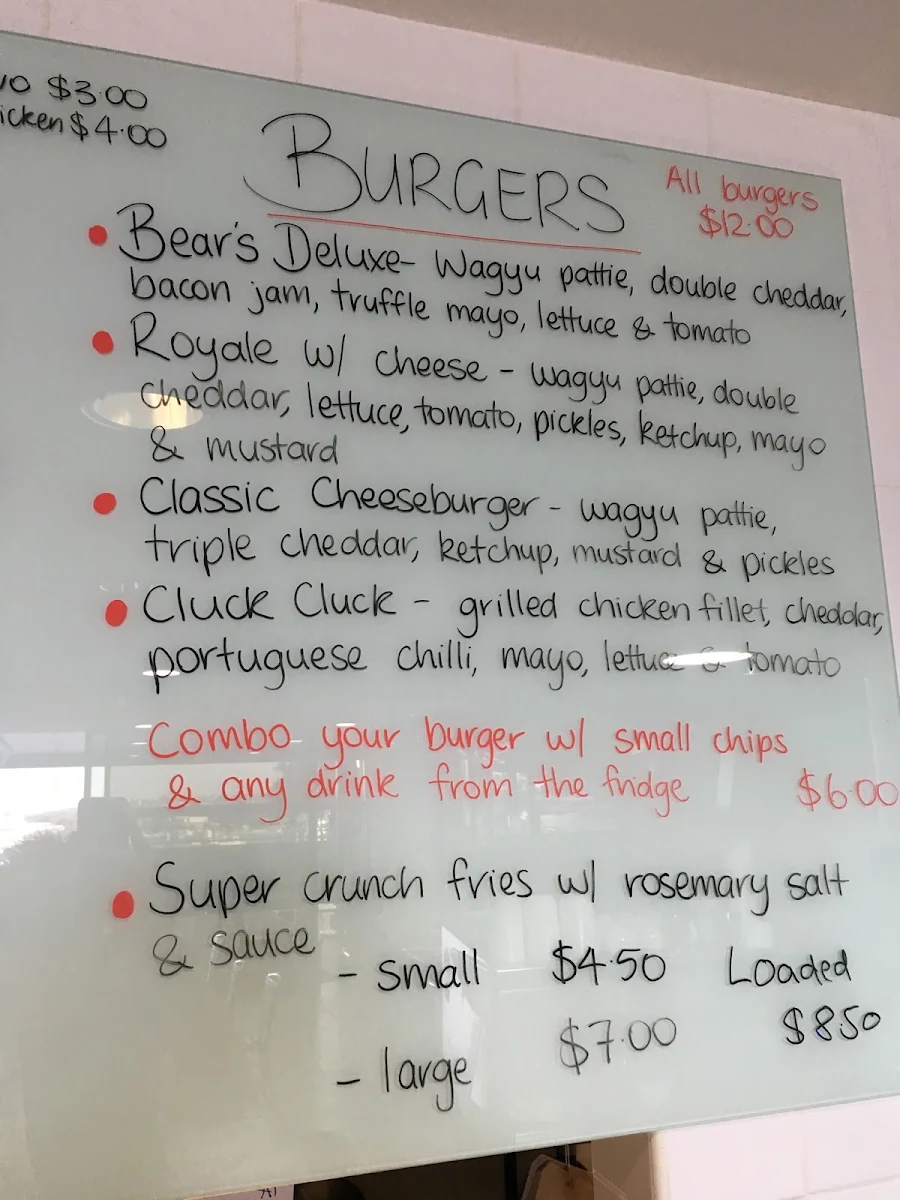 $3.00
$4.00
BURGERS
All burgers
$12.00
• Bear's Deluxe - Wagyu pattie, double cheddar,
bacon jam, truffle mayo, lettuce & tomato
• Royale w/ cheese - wagyu pattie, double
cheddar, lettuce, tomato, pickles, ketchup, mayo
& mustard
• Classic Cheeseburger - wagyu pattie,
triple cheddar, ketchup, mustard & pickles
• Cluck Cluck - grilled chicken fillet, cheddar,
portuguese chilli, mayo, lettuce & tomato
Combo your burger w/ small chips
& any drink from the fridge $6.00
• Super crunch fries w/ rosemary salt
& sauce
- small $4.50 Loaded
- large $7.00 $8.50